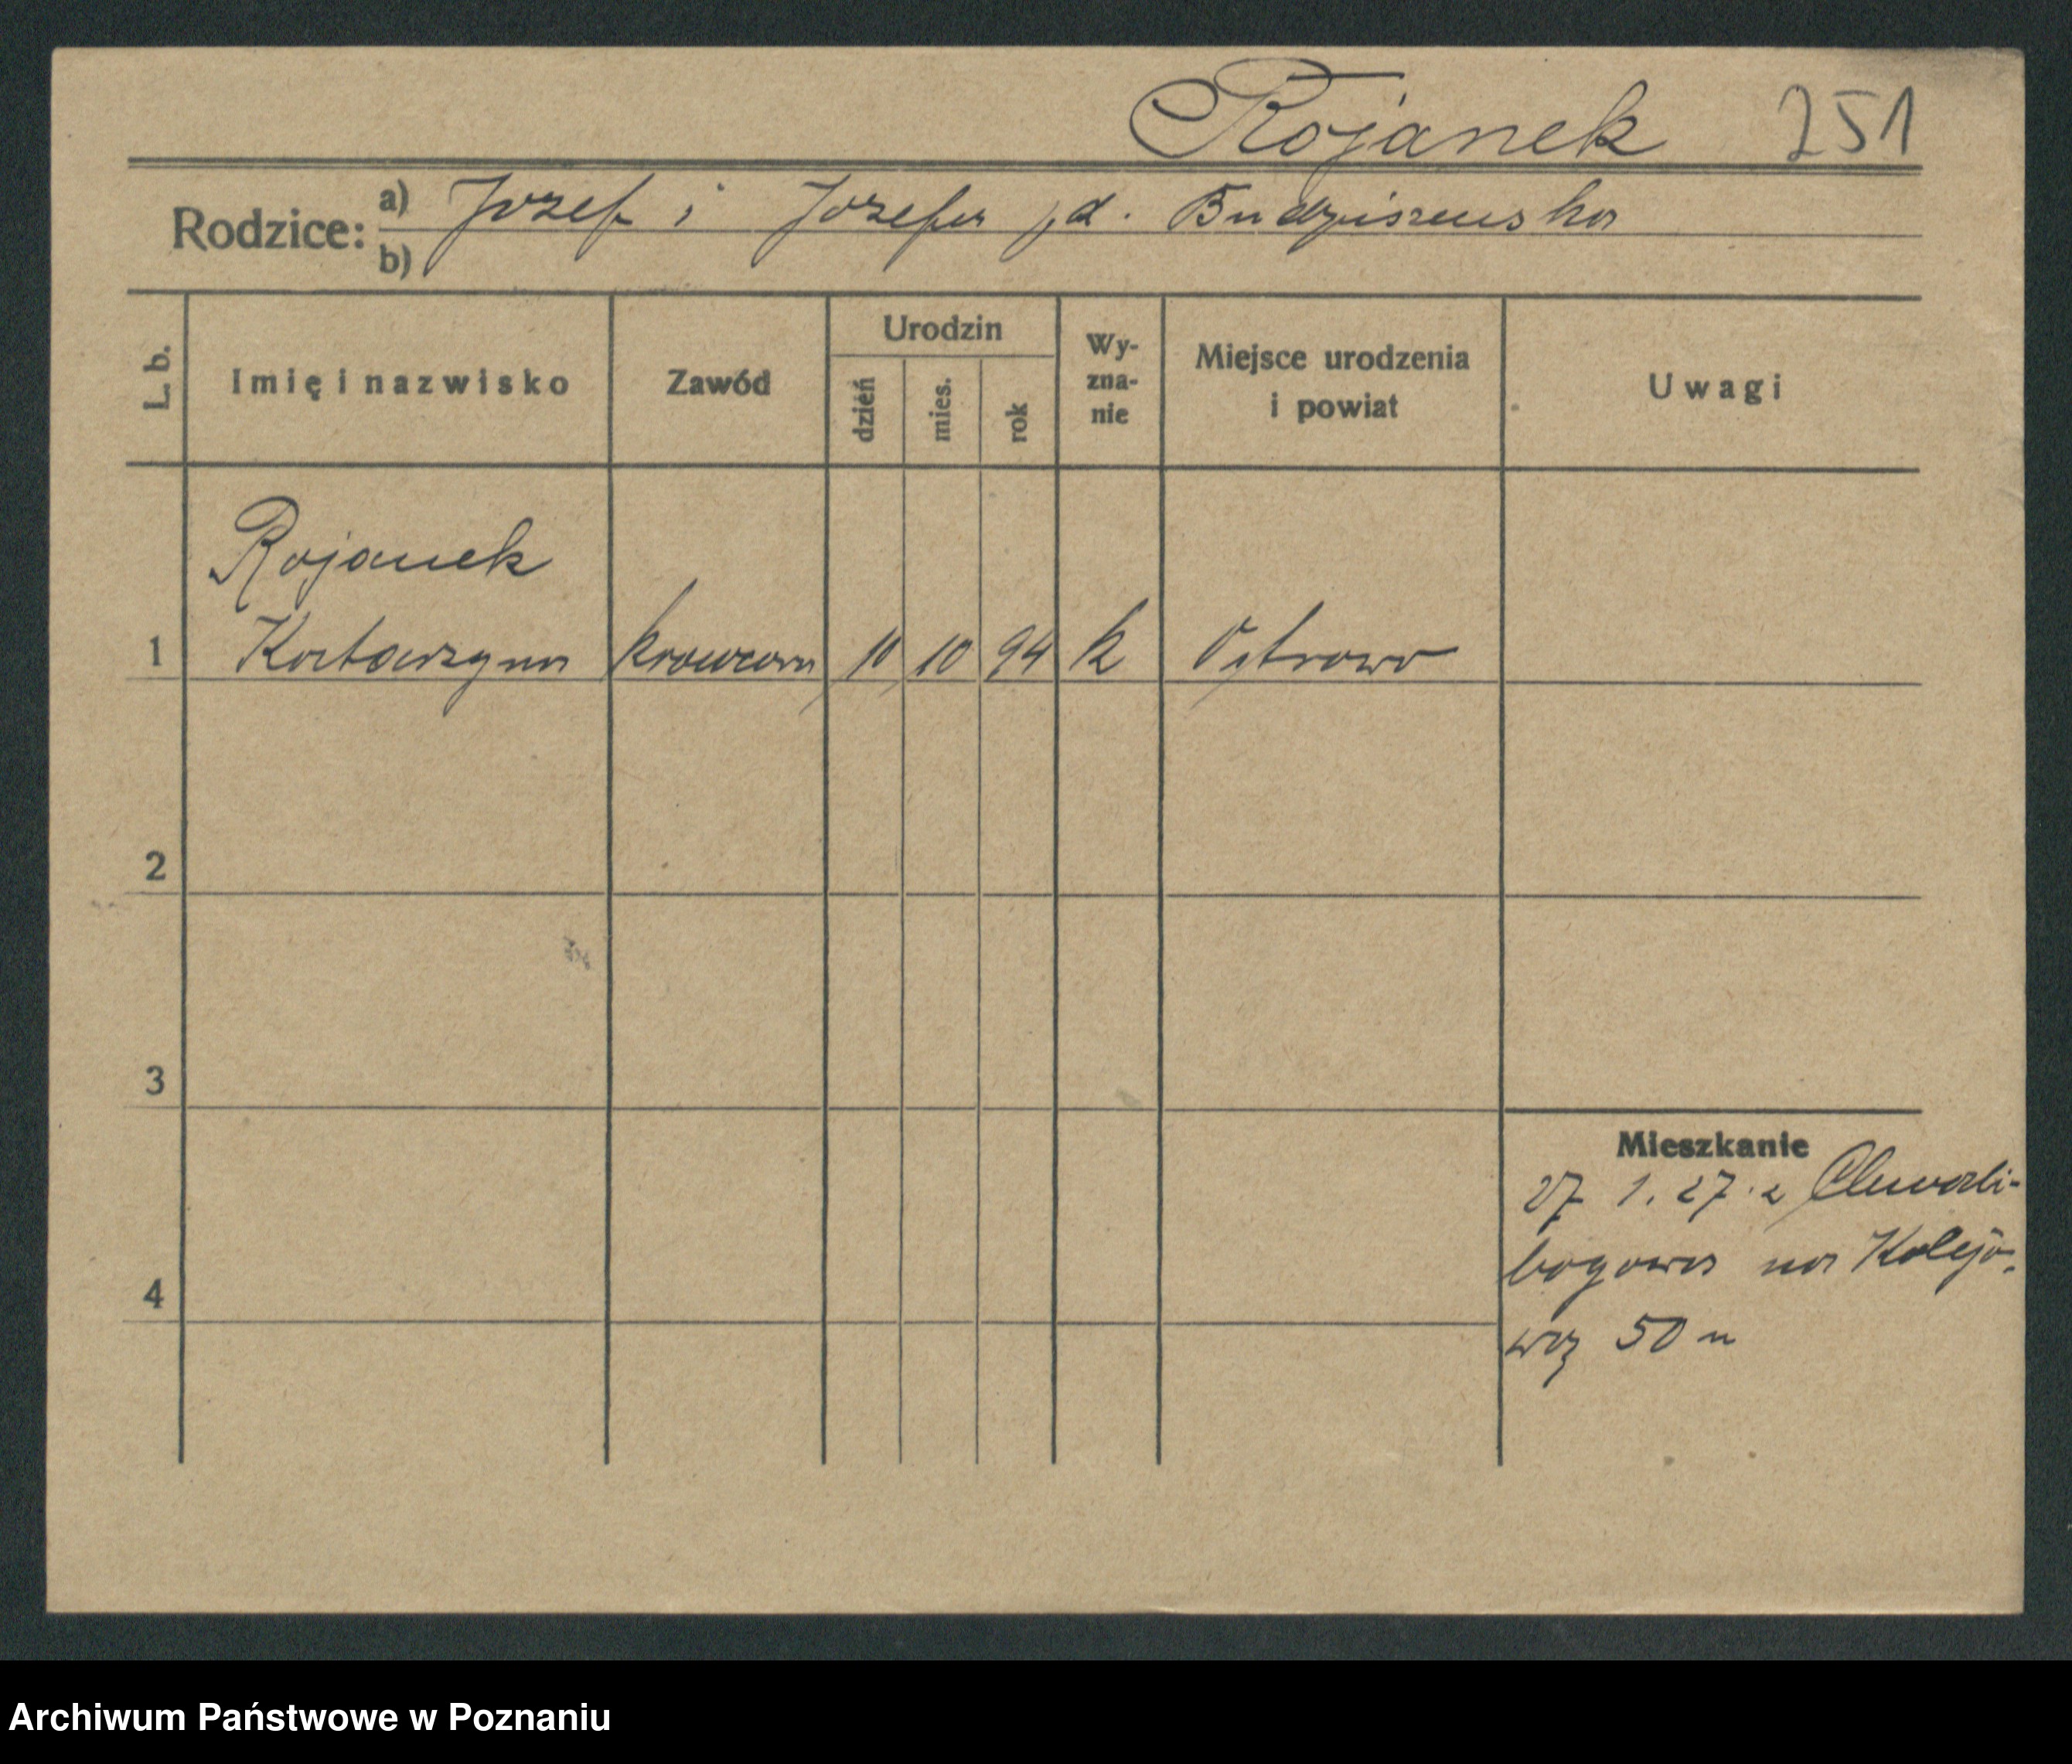 Rojanek 251
Rodzice: a) Jozef i Jozefa d. Budziszewska
b)
L. b.
Imię i nazwisko
Zawód
Urodzin
dzień
mies.
rok
Wy-
zna-
nie
Miejsce urodzenia
i powiat
Uwagi
Rojanek
1 Katarzyna krawcowa 10 10 94 k Ostrowo
2
3
Mieszkanie
27 1. 27. z Chwali-
bogowa na Kolejo-
4
wą 50 m
Archiwum Państwowe w Poznaniu